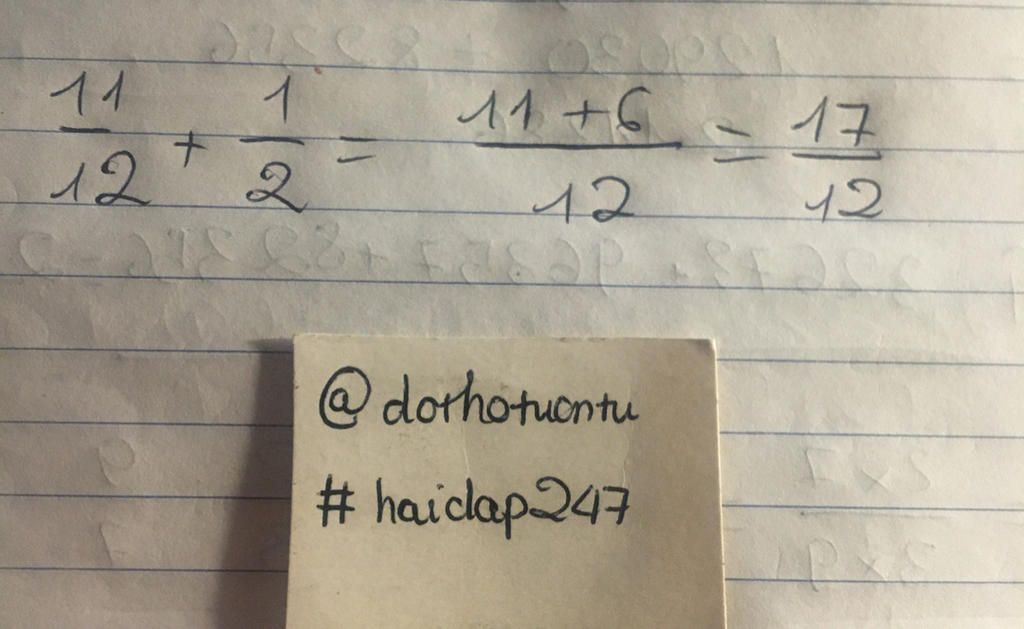 11/12 + 1/2 = 11+6/12 = 17/12
@dothotuontu
#haidap247